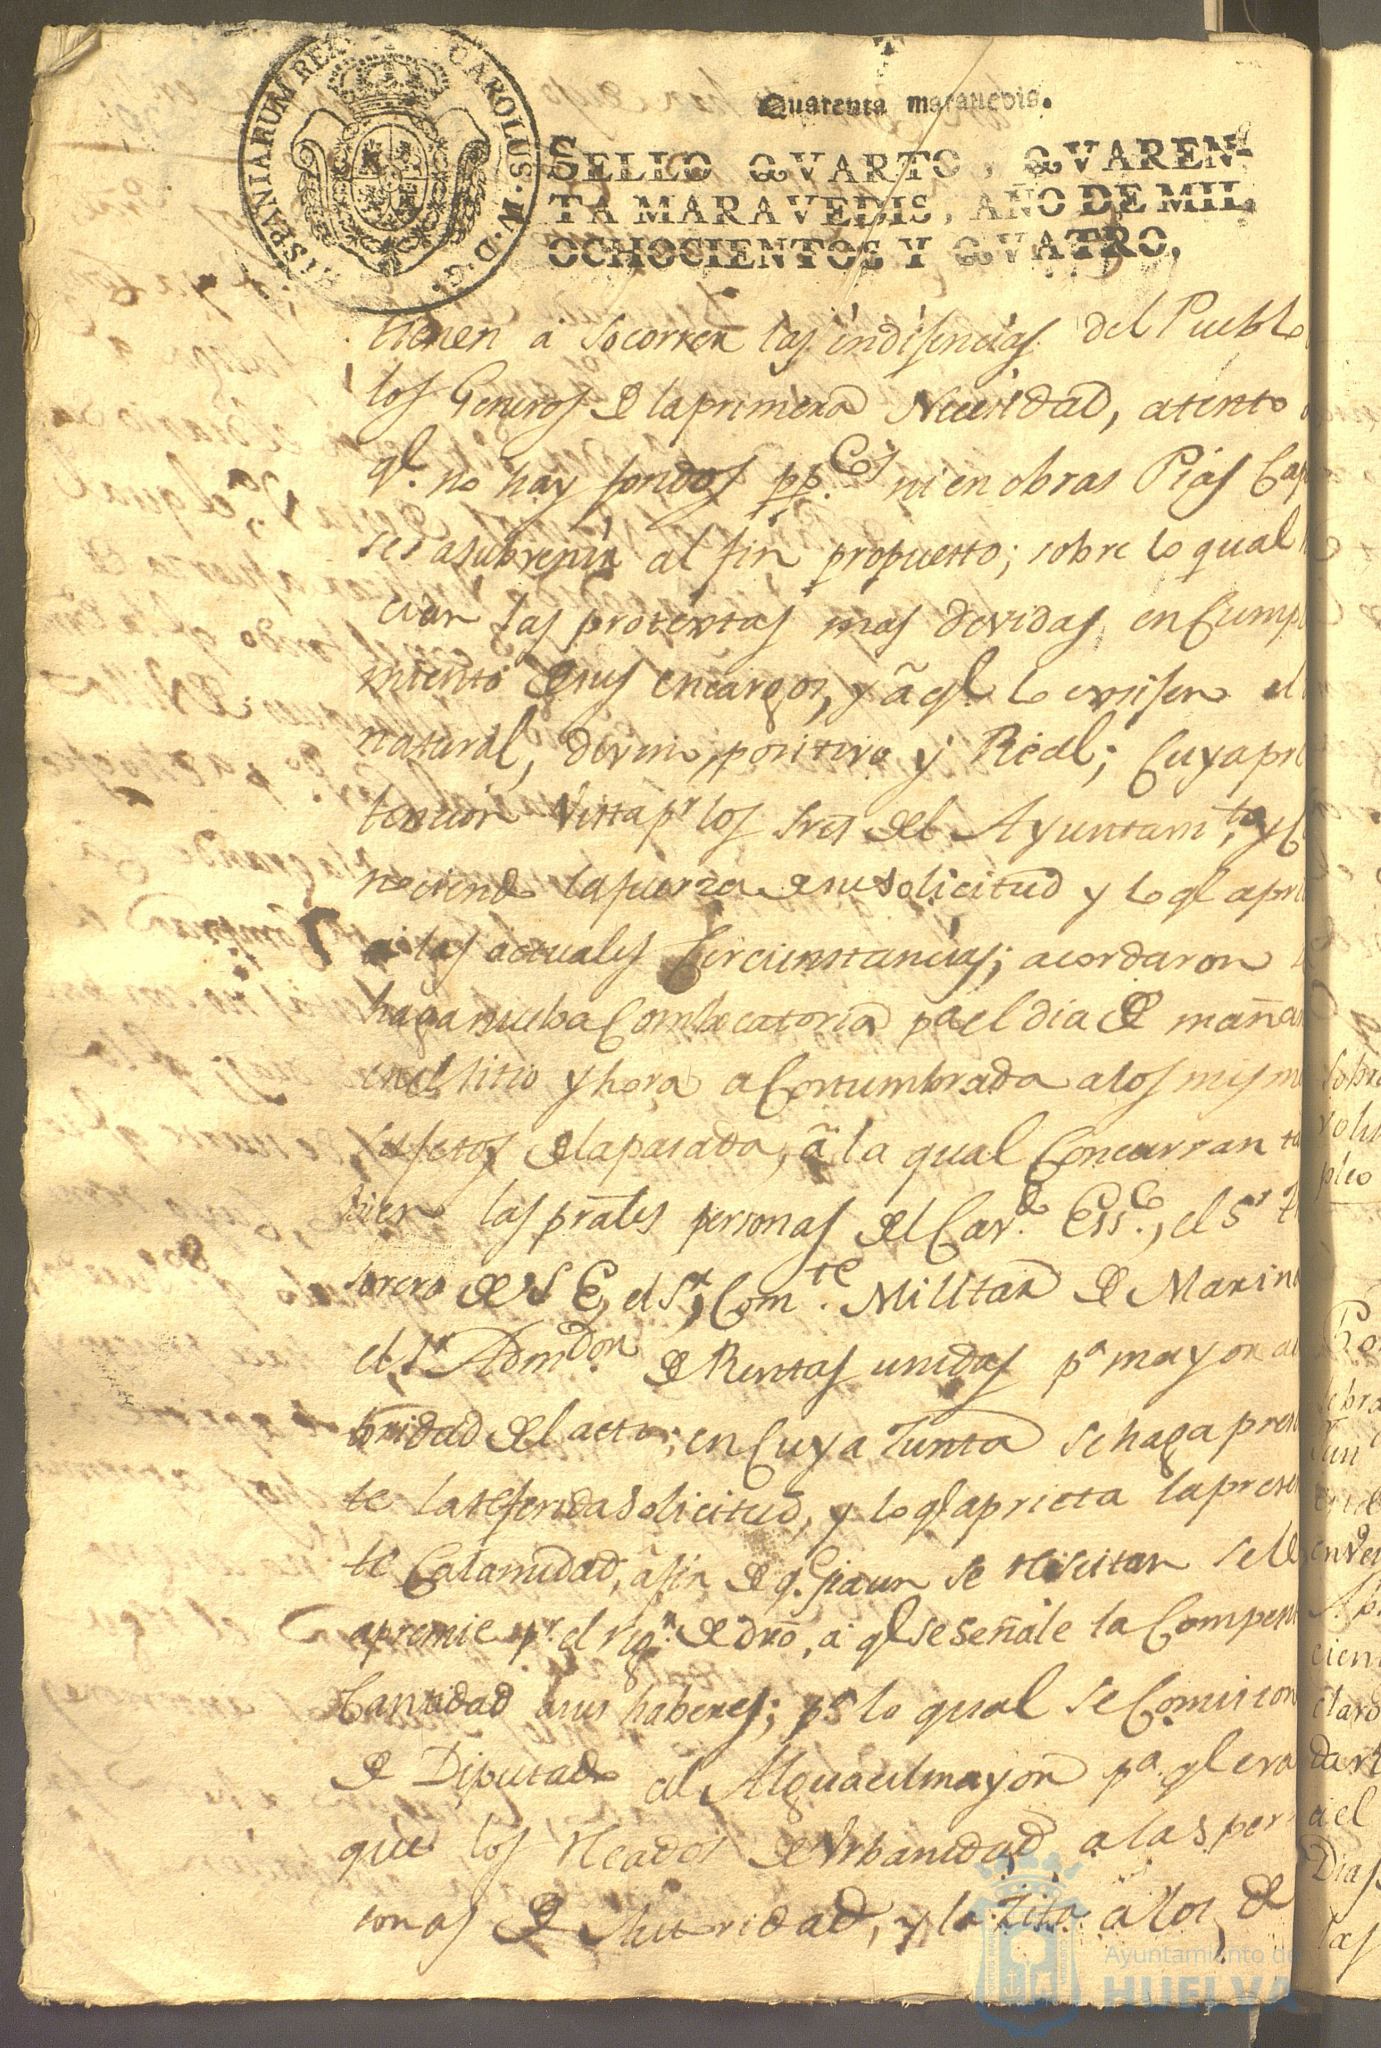 HISPANIARUM REX CAROLUS. IV. D. G.
Quarenta marauedis.
SELLO QVARTO, QVAREN-
TA MARAVEDIS, AÑO DE MIL
OCHOCIENTOS Y QVATRO.
tienen à socorrer las indisencias del Pueblo
los Generos de la primera Necesidad, atento
ql. no hay fondos pp.cos ni en obras Pias Cap
ses a subvenir al fin propuesto; sobre lo qual
cian las protextas mas devidas en Cumpl
miento de sus encargos, y à ql lo exsisen el
natural, devin, positivo y Real; Cuya pre
tencion Vista pr los Sres del Ayuntam.to y C
nociend la fuerza de su solicitud y lo ql apri
a las actuales Circunstancias; acordaron
haga nueba Combocatoria pa el dia de mañan
en el sitio y hora acostumbrada a los mism
sufetos de la pasada, à la qual Concurran ta
bien las prales personas del Cav.do Ecc.co, el Sr T
sorero de S E, el Sr Com.te Militar de Marin
el Sr Adm.dor de Rentas unidas pa mayor
bridad del acto; en Cuya Junta se haga presen
te la referida solicitud, y lo ql aprieta la presen
te Calamidad, a fin de q.
apremie pr. el rigr. de dro, a ql se señale la Compent
Cantidad a sus haberes; pa lo qual se Comision
de Diputado al Alguacil mayor pa ql eva
que los Recados de Urbanidad a las per
sonas de Autoridad, y la Zita à los de
sobre
volu
pleo
las
Dias
Ayuntamiento de
HUELVA